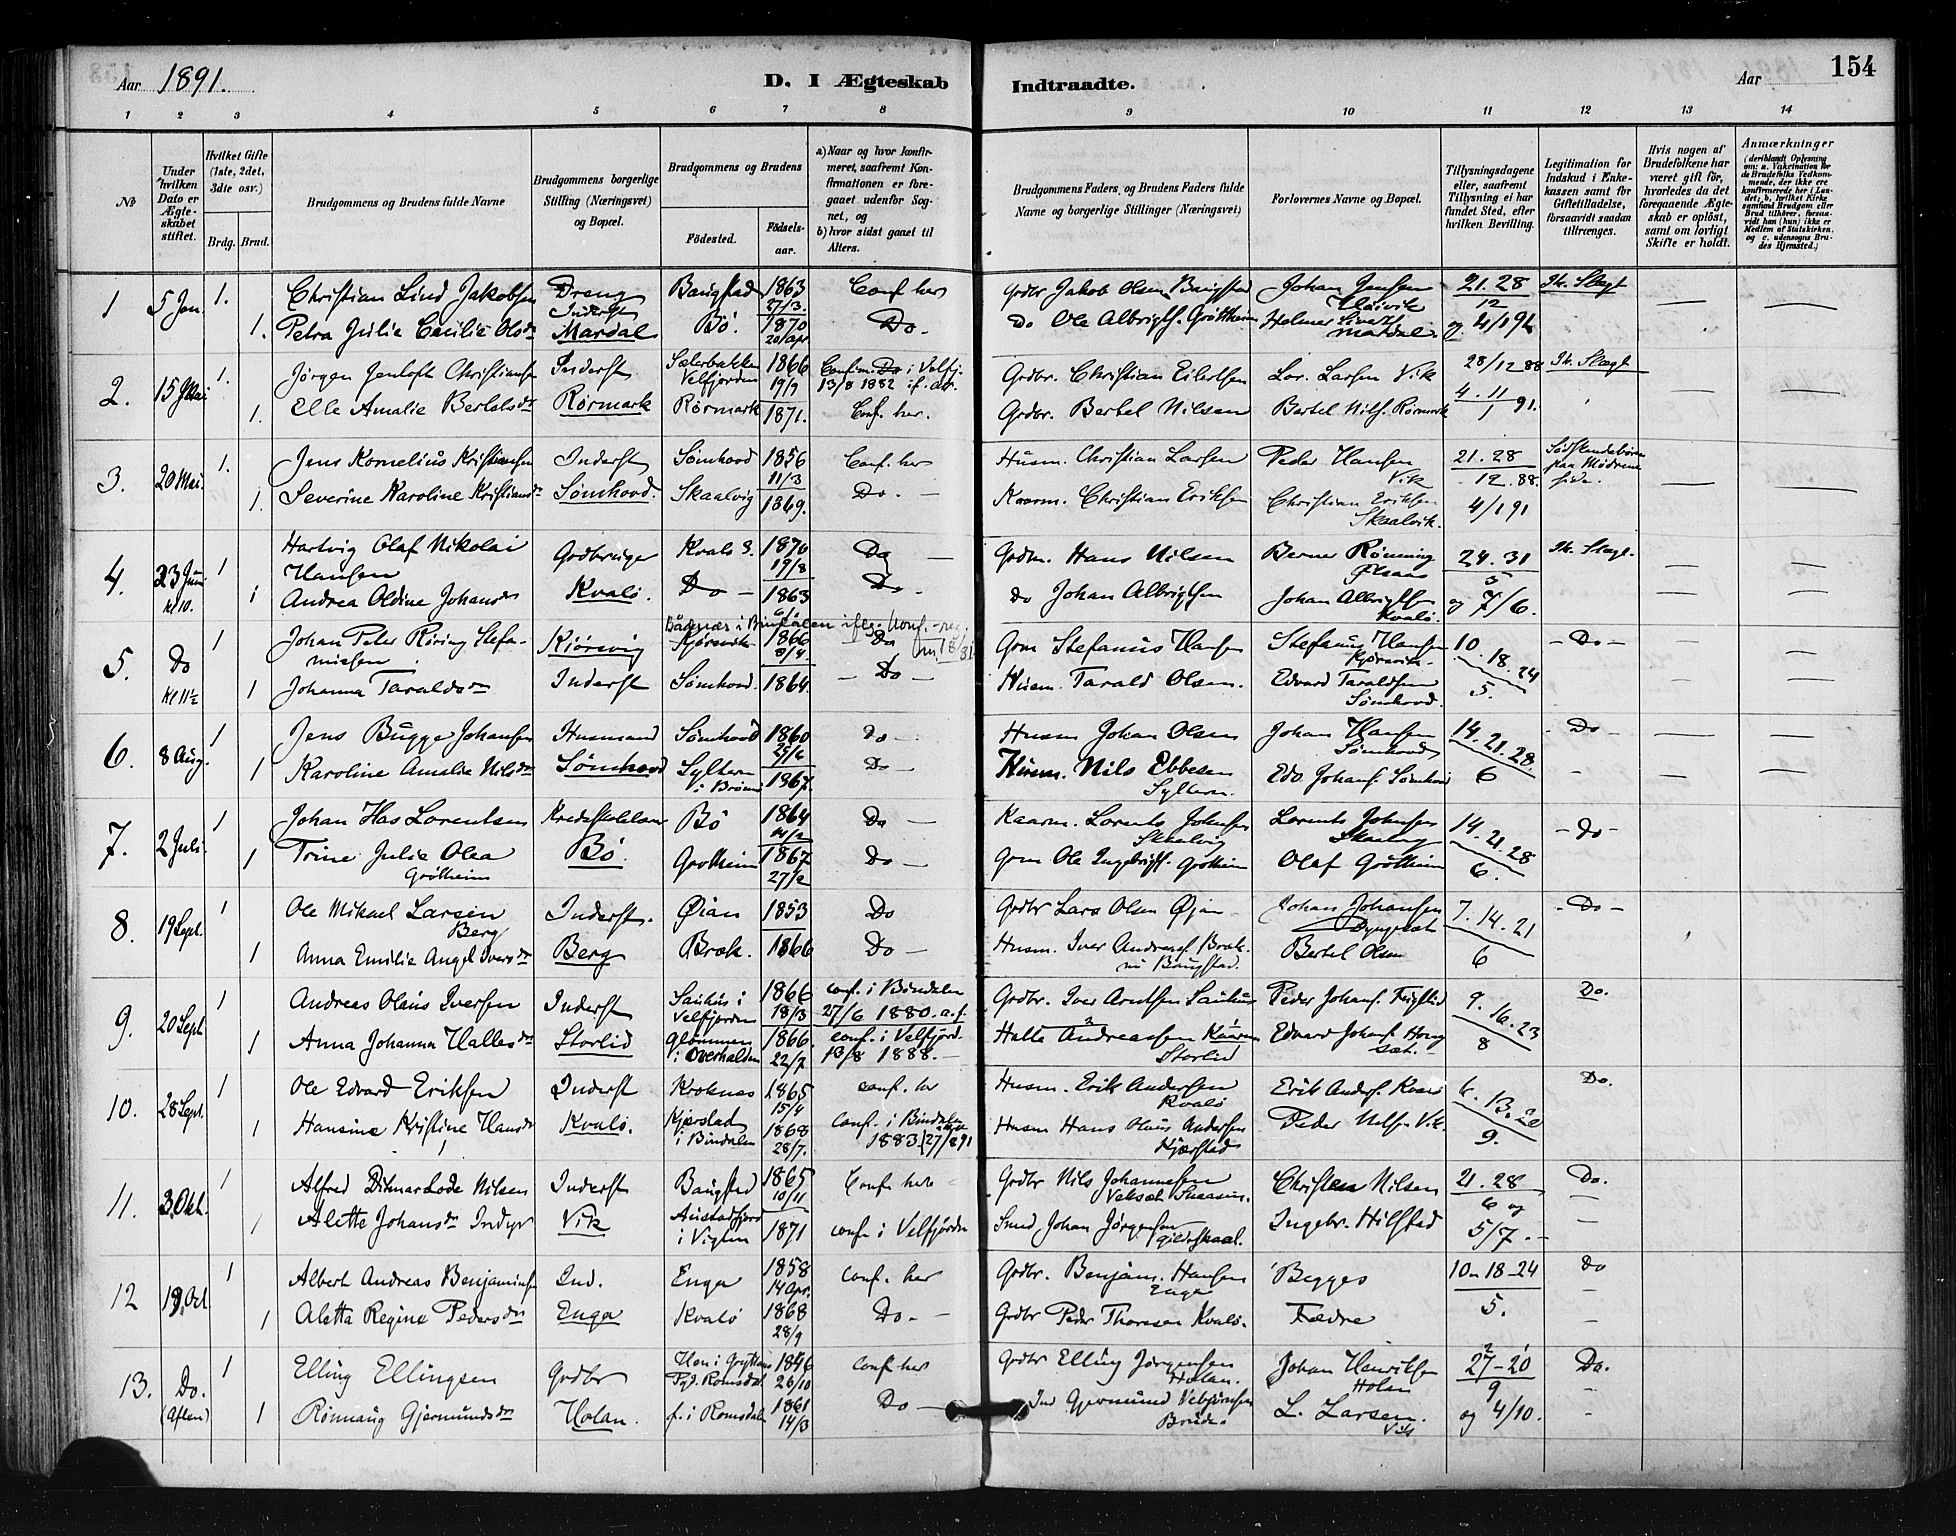 Aar 1891.
D. I Ægteskab Indtraadte.
Aar
154
1 2 3 4 5 6 7 8 9 10 11 12 13 14
No
Under hvilken Dato er Ægteskabet stiftet.
Hvilket Gifte (1ste, 2det, 3die osv.)
Brdg. Brud.
Brudgommens og Brudens fulde Navne
Brudgommens borgerlige Stilling (Næringsvei) og Bopæl.
Brudgommens og Brudens
Fødested.
Fødselsaar.
a) Naar og hvor konfirmeret, saafremt Konfirmationen er foregaaet udenfor Sognet, og
b) hvor sidst gaaet til Alters.
Brudgommens Faders, og Brudens Faders fulde Navne og borgerlige Stillinger (Næringsvei)
Forlovernes Navne og Bopæl.
Tillysningsdagene eller, saafremt Tillysning ei har fundet Sted, efter hvilken Bevilling.
Legitimation for Indskud i Enkekassen samt for Giftetilladelse, forsaavidt saadan tiltrænges.
Hvis nogen af Brudefolkene har været gift før, hvorledes da det foregaaende Ægteskab er opløst, samt om lovligt Skifte er holdt.
Anmærkninger
(deriblandt Oplysning om: a. Vakcination for de Brudefolks Vedkommende, der ikke ere konfirmerede her i Landet; b. hvilket Kirkesamfund Brudgom eller Brud tilhører, forsaavidt han (hun) ikke er Medlem af Statskirken, og c. udensogns Brudes Hjemsted.)
1 5 Jan. 1. Christian Lind Jakobsen Dreng Baugstad 1863 27/3 Conf. her Grdbr Jakob Olsen Baugstad Johan Jensen 21. 28 / 12
1. Petra Julie Cecilie Olsdr Inderst Mardal Bø. 1870 20/Apr Do. Do Ole Albrigts. Grøttheim Helmer Mardal og 4/1 91
2. 15 Mai 1. Jørgen Christiansen Inderst Velfjorden 1866 19/9 Conf. i Velfj. 13/8 1882 if. att. Grdbr. Christian Eilertsen Lor. Larsen Vik 28/12 88
1. Elle Amalie Bertelsdr Rørmark Rørmark 1871. Conf. her. Grdbr. Bertel Nilsen Bertel Nils. Rørmark 4. 11 / 1 91.
3. 20 Mai. 1. Jens Kornelius Kristiansen Inderst Sømhovd 1856 11/3 Conf. her Husm. Christian Larsen Peder Hansen Vik 21. 28 / 12. 88.
1. Severine Karoline Kristiansdr Sømhovd. Skaalvig 1869. Do. Kaarm. Christian Eriksen Christian Eriksen Skaalvik. 4/1 91
4. 23 Juni kl 10. 1 Hartvig Olaf Nikolai Hansen Grdbruger Kvalø 1870 19/8 Do Hans Nilsen Berner Rønning 24. 31 / 5
1 Andrea Oldine Johansdr Kvalø. Do 1863 Do. Do Johan Albrigtsen Johan Albrigts Kvalø. og 7/6.
5. Do Kl 11½ 1 Johan Peter Røring Stefanussen Kjørsvig Kjørsvik 1866 8/4 Do Stefanus Hansen Stefanus Hansen Kjørsvik 10. 18. 24 / 5. Do
1 Johanna Taraldsdr Inderst Sømhovd. 1864. Do Husm. Tarald Olsen. Edvard Taraldsen Sømhovd.
6. 8 Aug. 1 Jens Bugge Johansen Husmand Sømhovd 1860 Do Husm Johan Olsen Johan Hansen Sømhovd 14. 21. 28. / 6 Do
1 Karoline Amalie Nilsdr Sømhovd Syltern i Brønnø 1867. Do Husm. Nils Ebbesen Syltern. Edv. Johans. Sømhovd
7. 2 Juli. 1 Johan Has Lorentsen Bø 1864 14/2 Do Kaarm. Lorents Johnsen Skaalvig Lorents Johnsen Skaalvig 14. 21. 28 / 6. Do
1 Trine Julie Olea Grøttheim Bø. Grøttheim 1867 27/2 Do Ole Ingebrigts. Grøttheim Olaf Grøttheim
8. 19 Sept. 1 Ole Mikael Larsen Berg Inderst. Øian 1853 Do Grdbr Lars Olsen Øian Johan Johansen 7. 14. 21 / 6 Do
1 Anna Emilie Angel Iversdr Berg Bræk. 1866 Do Husm. Iver Andreas. Bræk. nu Baugstad. Bertel Olsen
9. 20 Sept. 1 Andreas Olaus Iversen Inderst Sauhus i Velfjorden 1866 18/3 conf. i Bindalen 27/6 1880. a.f. Grdbr. Iver Arntsen Sauhus Peder Johans. 9. 16. 23 / 8 Do.
1 Anna Johanna Hallesdr Storlid i Overhalden 1866. 22/7 conf. i Velfjord. 13/8 1888. Halle Andreassen Storlid Edvard Johans.
10. 28 Sept. 1 Ole Edvard Eriksen Inderst Kroknes 1865 15/4 conf. her Husm. Erik Andersen Kvalø Erik Anders. Kvalø 6. 13. 20 / 9. Do.
1 Hansine Kristine Hansdr Kvalø. Kjærstad i Bindalen 1868 28/7. conf. i Bindalen 1883 Husm Hans Olaus Andersen Kjærstad Peder Nils. Vik.
11. 3. Okt. 1 Alfred Ditmar Lode Nilsen Inderst Baugstad 1865 10/11 Conf. her Grdbr Nils Johannesen Christen Nilsen 21. 28 / 6 og Do.
1 Alette Johansdr Indyr Vik Austadfjord i Vigten 1871 conf. i Velfjorden Smed Johan Jørgensen Gildeskaal. Ingebr. Hilstad 5/7.
12 19. Oct 1 Albert Andreas Benjaminsen Ind. Enga 1858 14 Apr. Conf. her Grdbr. Benjam. Hansen Enga Begges 10-18-24 / 5. Do
1 Aletta Regine Pedersdr Enga Kvalø 1868 28/9 Do. Grdbr Peder Thoresen Kvalø. Fædre
13. Do. (Aften) 1 Elling Ellingsen Grdbr Romsdal 1846 26/10 Conf. her Grdbr Elling Jørgensen Holan. Johan Henriksen Holan 27-20 / 9 Do.
1 Rønnaug Gjermundsdr Holan. f. i Romsdalen 1861 14/3 Do Ind Gjermund L. Larsen. Vik og 4/10.